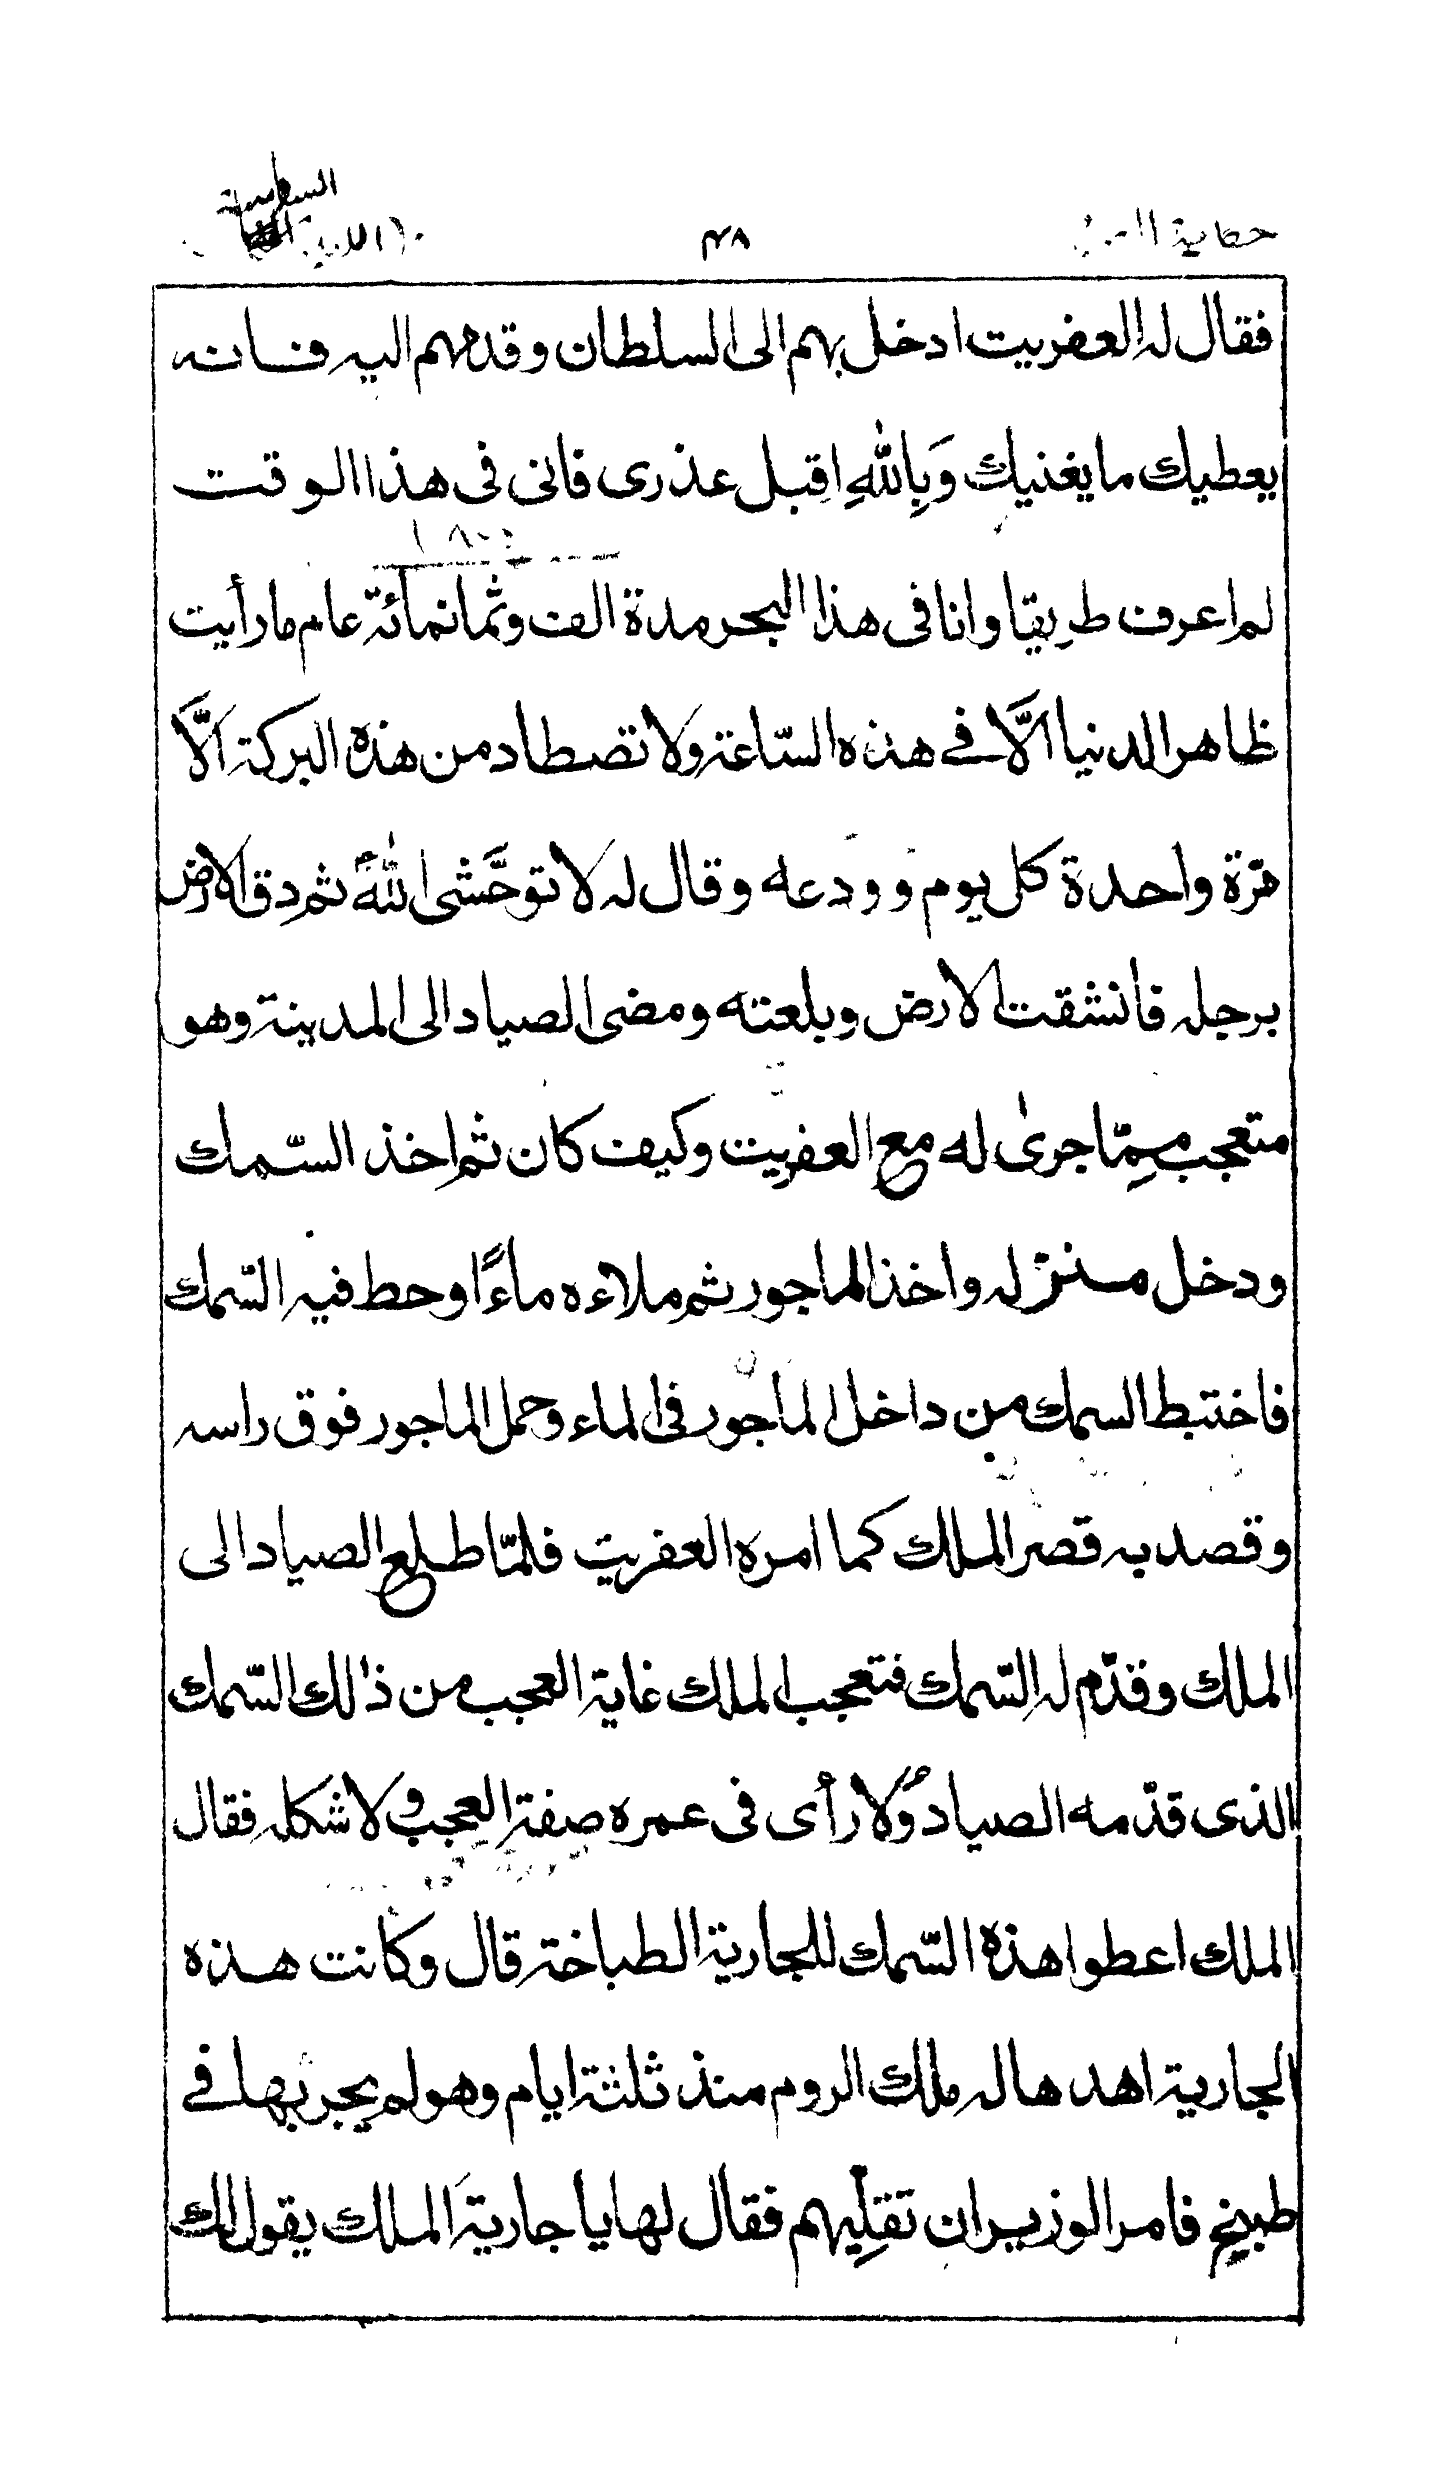 حكاية
٤٨
فقال له العفريت ادخل بهم الى السلطان وقدمهم اليه فانه
يعطيك ما يغنيك وَبِاللهِ اقبل عذرى فانى فى هذا الوقت
١٨٠٠
لم اعرف طريقا وانا فى هذا البحر مدة الف وثمانمائة عام ما رأيت
ظاهر الدنيا الَّا فے هذه السّاعة ولا تصطاد من هذه البركة الَّا
مرّة واحدة كل يوم وودعه وقال له لا توحَّشى اللهُ ثم دق الارض
برجله فانشقت الارض وبلعته ومضى الصياد الى المدينة وهو
متعجب مِمّا جرىٰ له مع العفريت وكيف كان ثم اخذ السّمك
ودخل منزله واخذ الماجور ثم ملاءه ماءً وحط فيه السّمك
فاختبط السمك من داخل الماجور فى الماء وحمل الماجور فوق راسه
وقصد به قصر الملك كما امره العفريت فلمّا طلع الصياد الى
الملك وقدّم له السّمك فتعجب الملك غاية العجب من ذٰلك السّمك
الذى قدّمه الصياد وُلا رأى فى عمره صفة العجب ولا شكله فقال
الملك اعطوا هذه السّمك للجارية الطباخة قال وكانت هذه
الجارية اهدهاله ملك الروم منذ ثلثة ايام وهو لم يجربها فے
طبيخ فامر الوزير ان تقلِيهم فقال لها يا جاريةَ الملك يقول لك